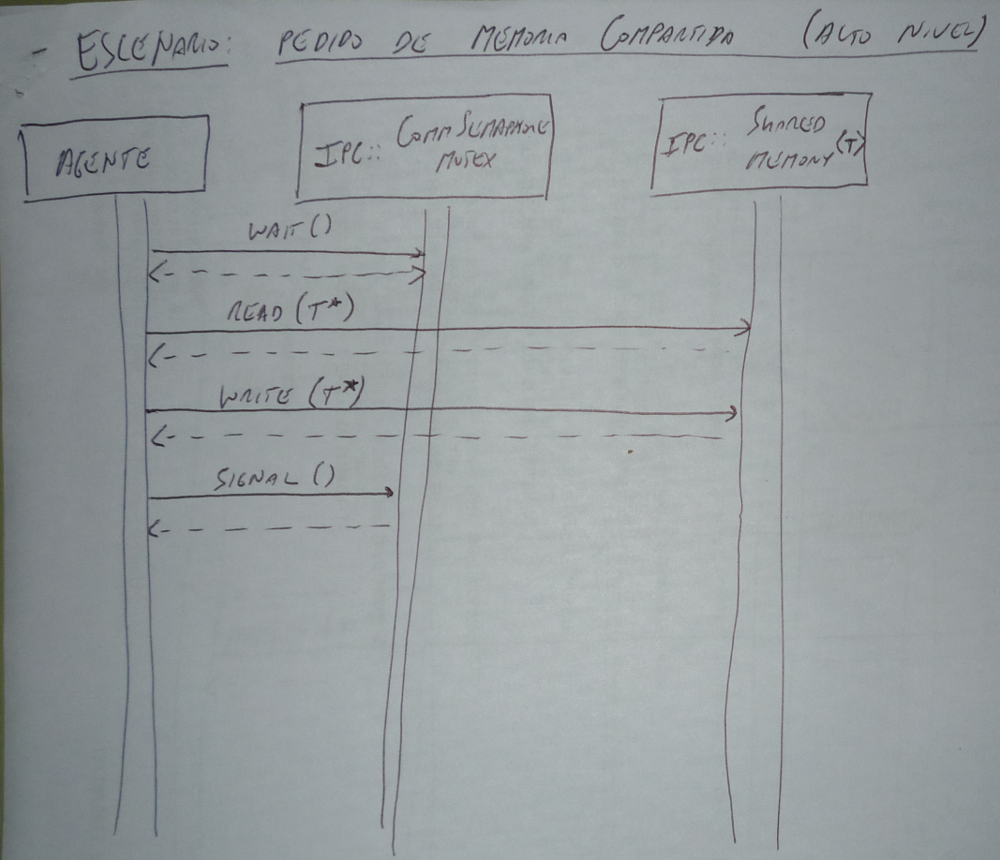 - ESCENARIO: PEDIDO DE MEMORIA COMPARTIDA (ALTO NIVEL)
AGENTE
IPC:: COMMSEMAPHORE
MUTEX
IPC:: SHARED
MEMORY (T)
WAIT()
READ (T*)
WRITE (T*)
SIGNAL ()